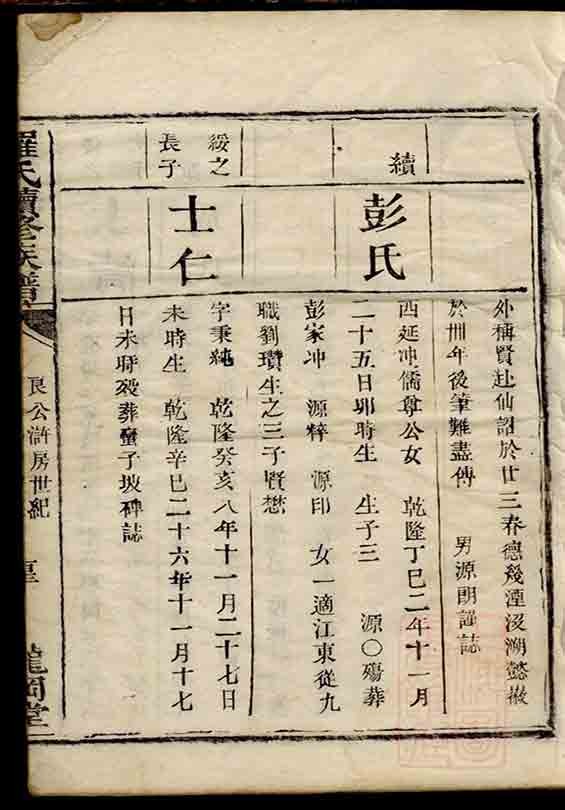 外稱賢赴仙詔於廿三春德幾湮沒溯懿徽
於卌年後筆難盡傳 男源朗謹誌
續
彭氏
西延冲儒尊公女 乾隆丁巳二年十一月
二十五日卯時生 生子三 源〇殤葬
彭家冲 源粹 源印 女一適江東從九
職劉瓚生之三子賢懋
綏之
長子
士仁
字秉純 乾隆癸亥八年十一月二十七日
未時生 乾隆辛巳二十六年十一月十七
日未時歿葬蠻子坡碑誌
羅氏續修族譜
良公滸房世紀
龍岡堂